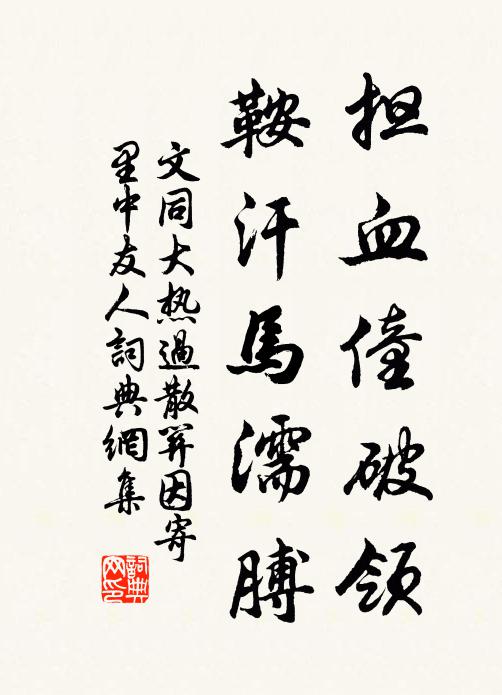 担血僮破领
鞍汗馬濡膊
文同大热過散関因寄
里中友人詞典網集
詞典网印